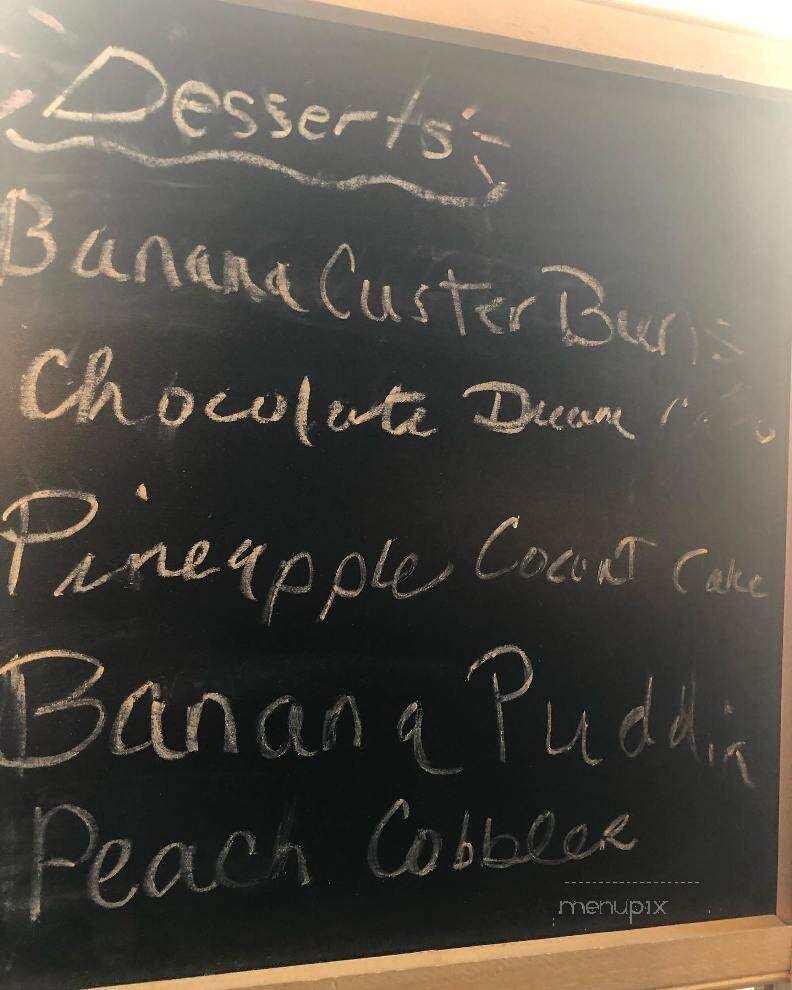 Desserts
Banana Custer
Chocolate
Pineapple Cocunt Cake
Banana Puddin
Peach Cobbler
menupix